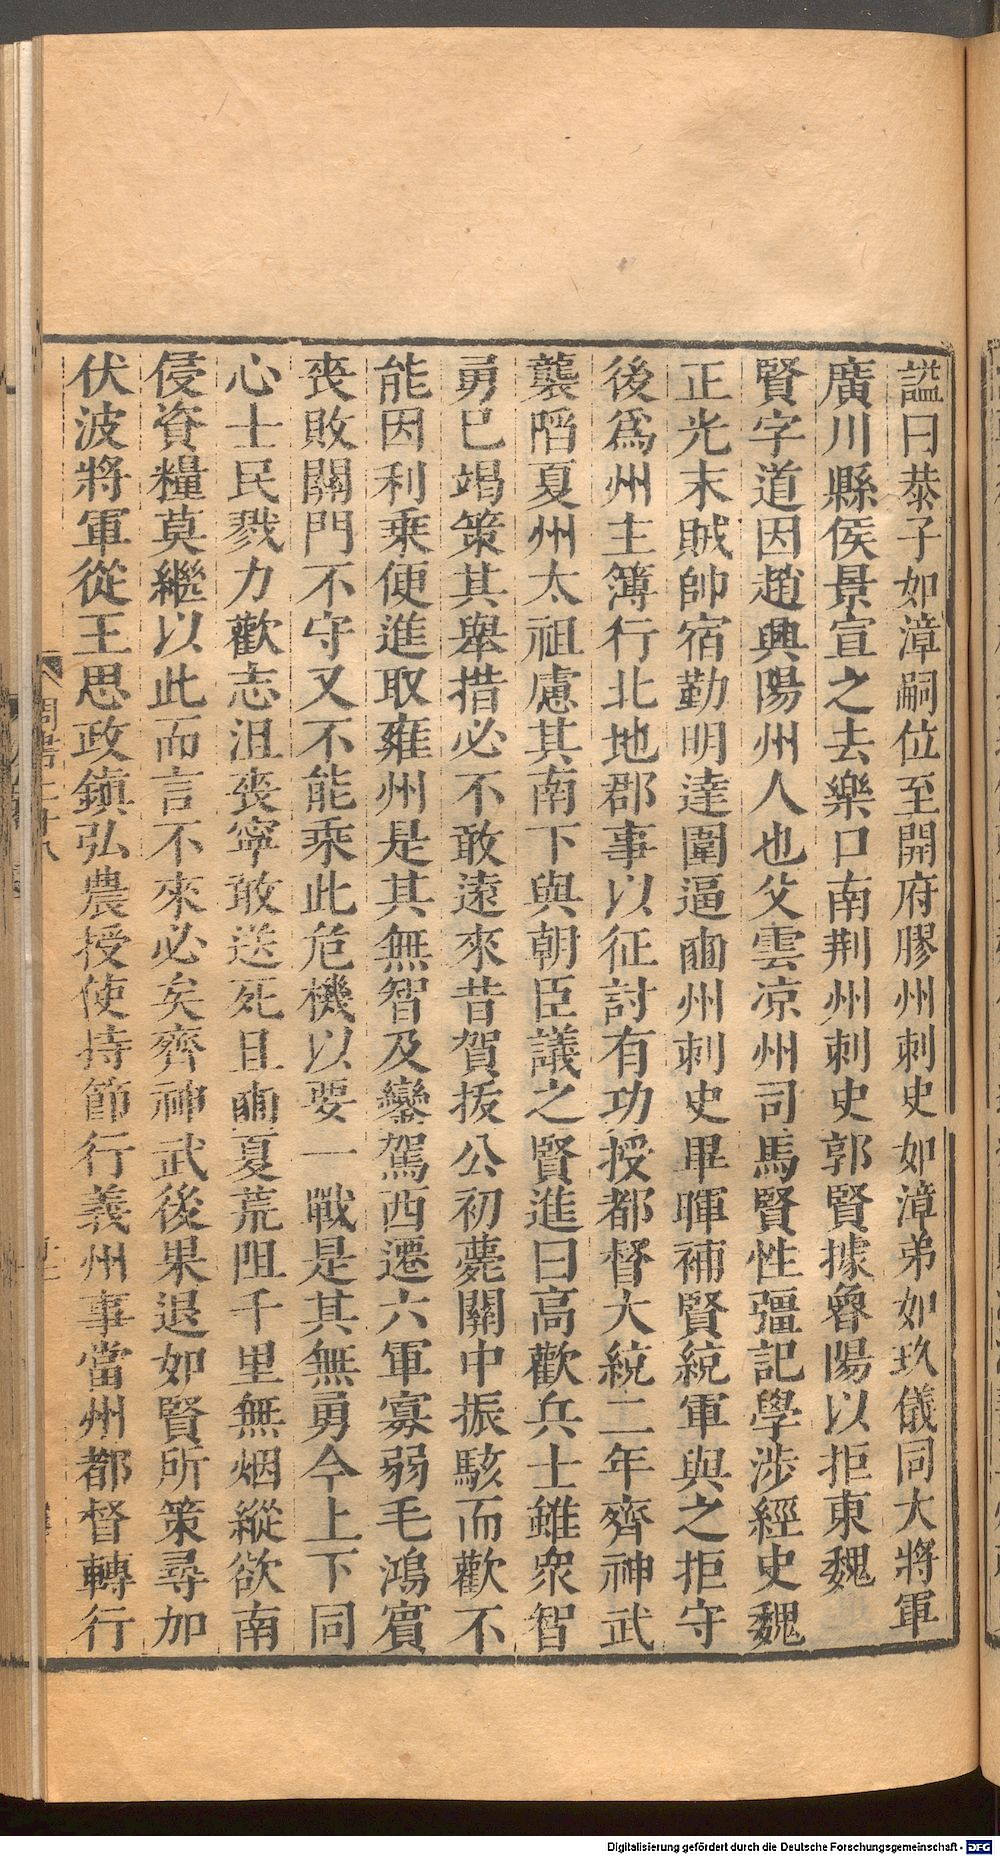 謚曰恭子如漳嗣位至開府膠州刺史如漳弟如玖儀同大將軍
廣川縣侯景宣之去樂口南荆州刺史郭賢據魯陽以拒東魏
賢字道因趙興陽州人也父雲凉州司馬賢性彊記學涉經史魏
正光末賊帥宿勤明達圍逼豳州刺史畢暉補賢統軍與之拒守
後爲州主簿行北地郡事以征討有功授都督大統二年齊神武
襲陷夏州太祖慮其南下與朝臣議之賢進曰高歡兵士雖衆智
勇已竭策其舉措必不敢遠來昔賀拔公初薨關中振駭而歡不
能因利乗便進取雍州是其無智及鑾駕西遷六軍寡弱毛鴻賓
喪敗關門不守又不能乗此危機以要一戰是其無勇今上下同
心士民戮力歡志沮喪寧敢送死且豳夏荒阻千里無烟縱欲南
侵資糧莫繼以此而言不來必矣齊神武後果退如賢所策尋加
伏波將軍從王思政鎮弘農授使持節行義州事當州都督轉行
Digitalisierung gefördert durch die Deutsche Forschungsgemeinschaft - DFG